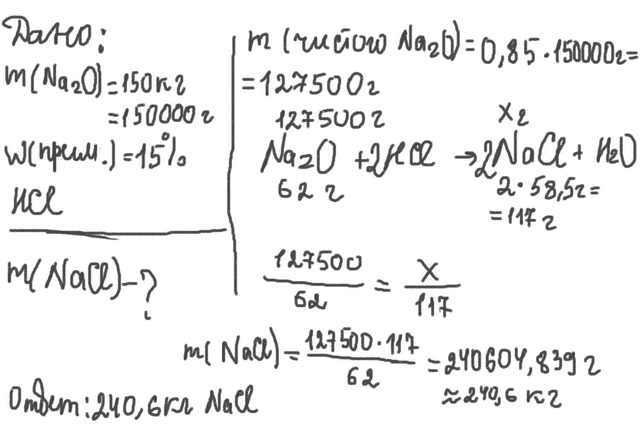 Дано:
m(Na₂O)=150кг
=150000г
w(прим.)=15%
HCl
m(NaCl)-?
m (чистого Na₂O)=0,85·150000г=
=127500г
127500г xг
Na₂O +2HCl →2NaCl+ H₂O
62 г 2·58,5г=
=117г
127500/62 = x/117
m( NaCl)=127500·117/62=240604,839г
≈240,6 кг
Ответ:240,6кг NaCl